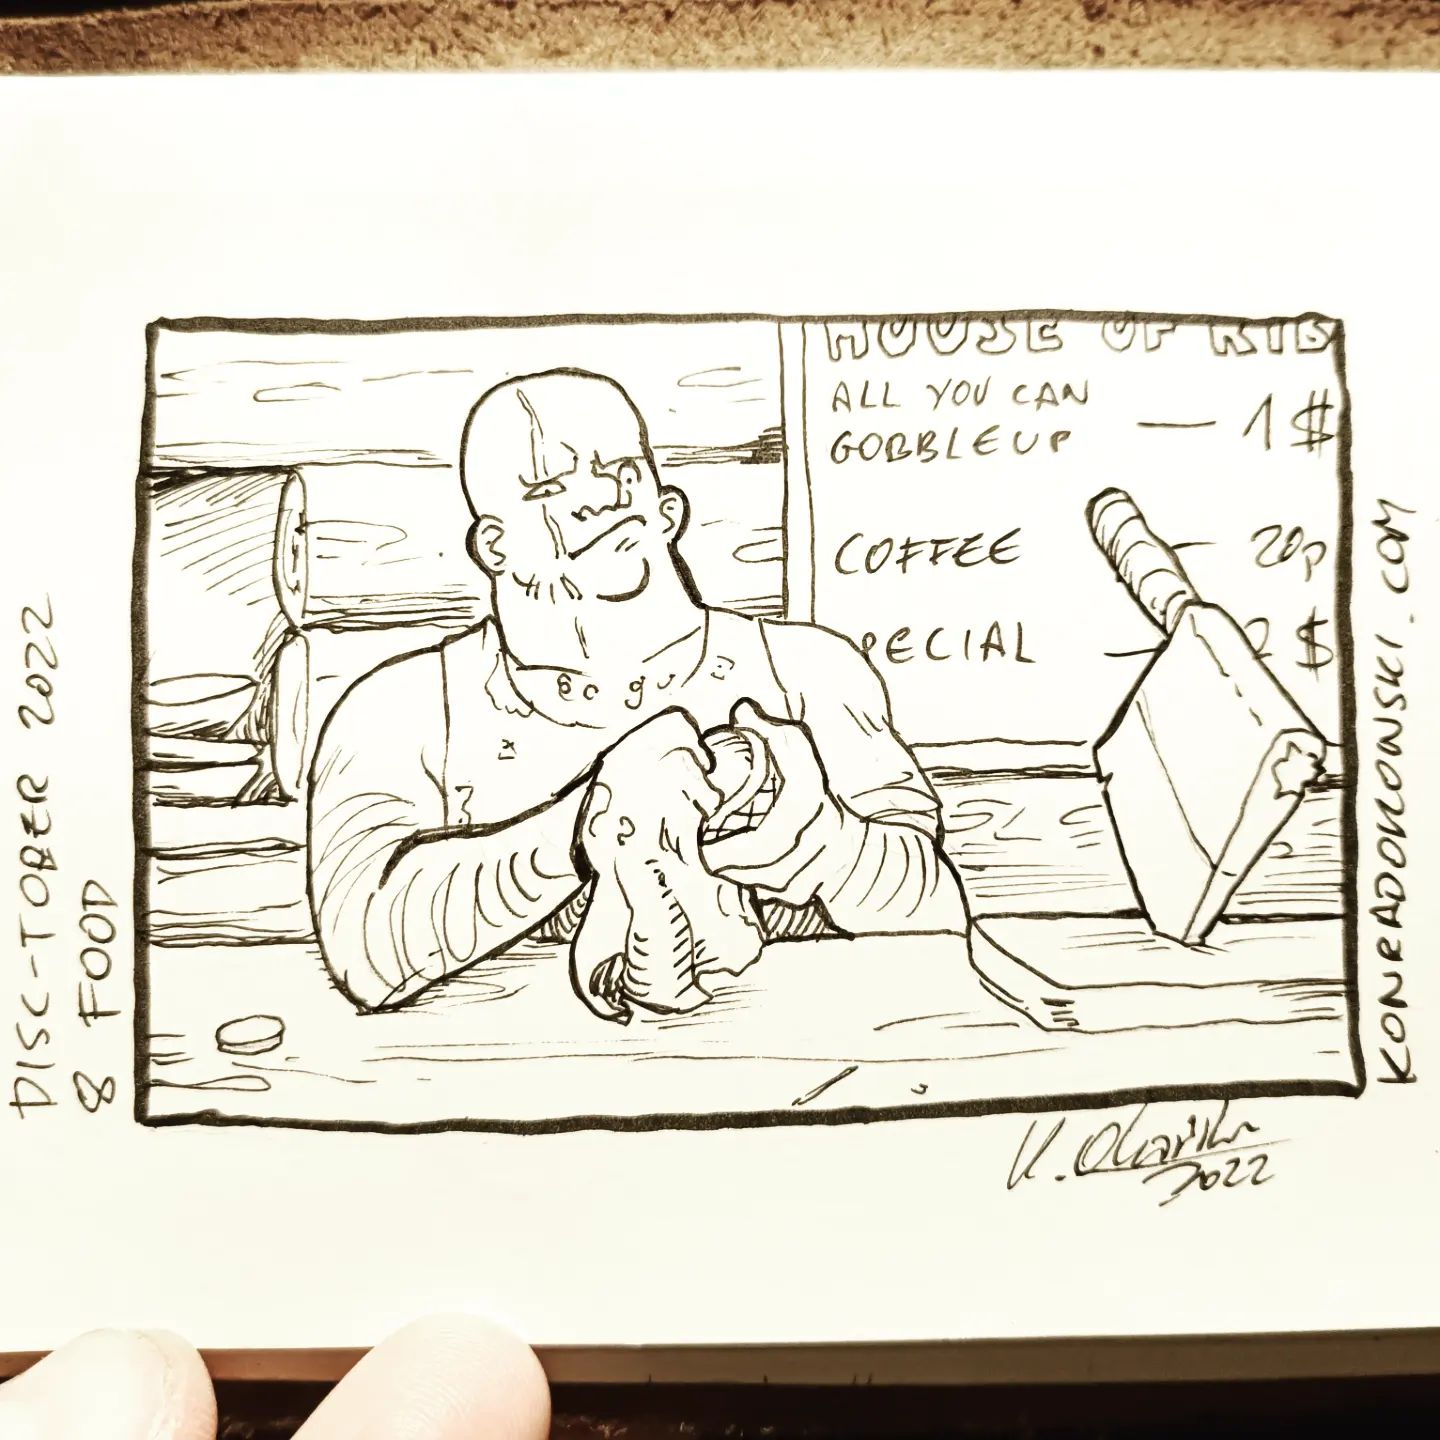 HOUSE OF RIB
ALL YOU CAN
GOBBLEUP — 1 $
COFFEE — 20p
PECIAL — $
DISC-TOBER 2022
8 FOOD
KONRADOKONSKI.COM
2022